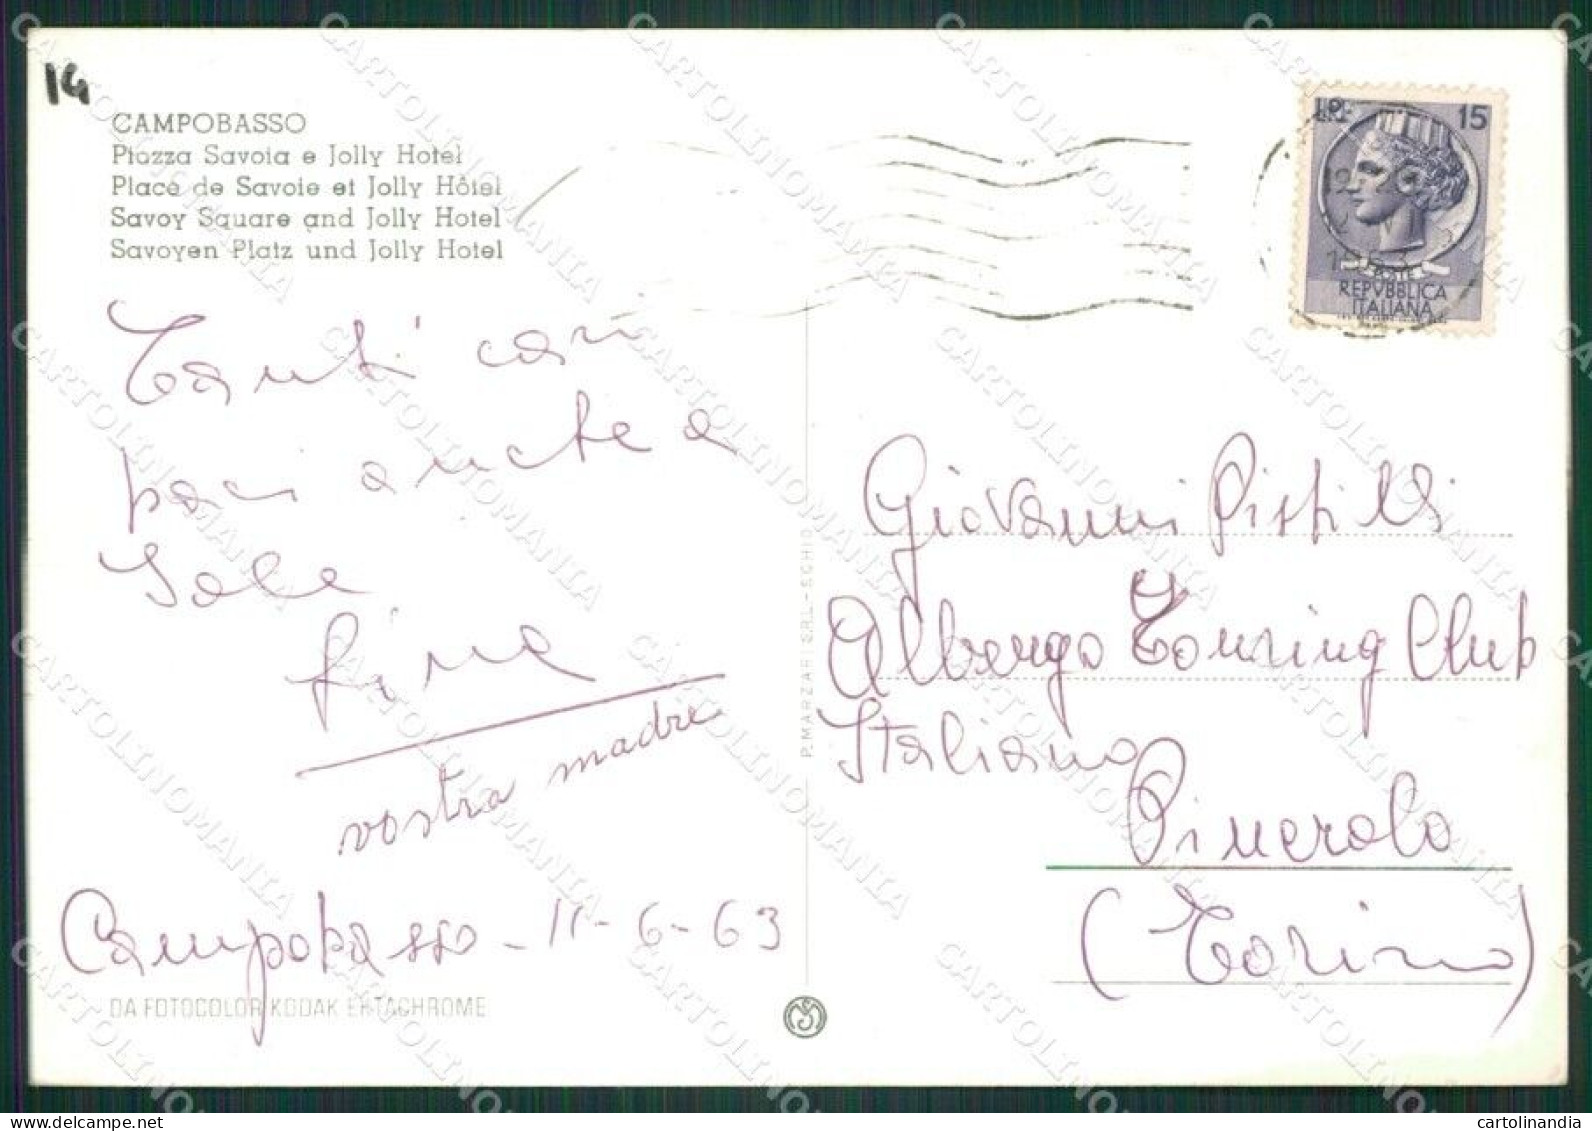 14
CAMPOBASSO
Piazza Savoia e Jolly Hotel
Place de Savoie et Jolly Hôtel
Savoy Square and Jolly Hotel
Savoyen Platz und Jolly Hotel
15
POSTE
REPVBBLICA
ITALIANA
Tanti cari
baci anche a
Iole
vostra madre
Campobasso - 11-6-63
DA FOTOCOLOR KODAK EKTACHROME
P. MARZARI S.R.L. - SCHIO
Giovanni Pistilli
Albergo Touring Club
Italiano
Pinerolo
(Torino)
CARTOLINOMANIA
cartolinandia